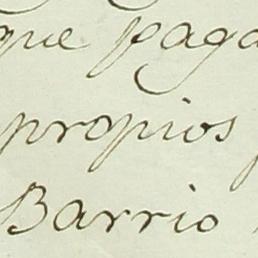 que paga
propios
Barrio